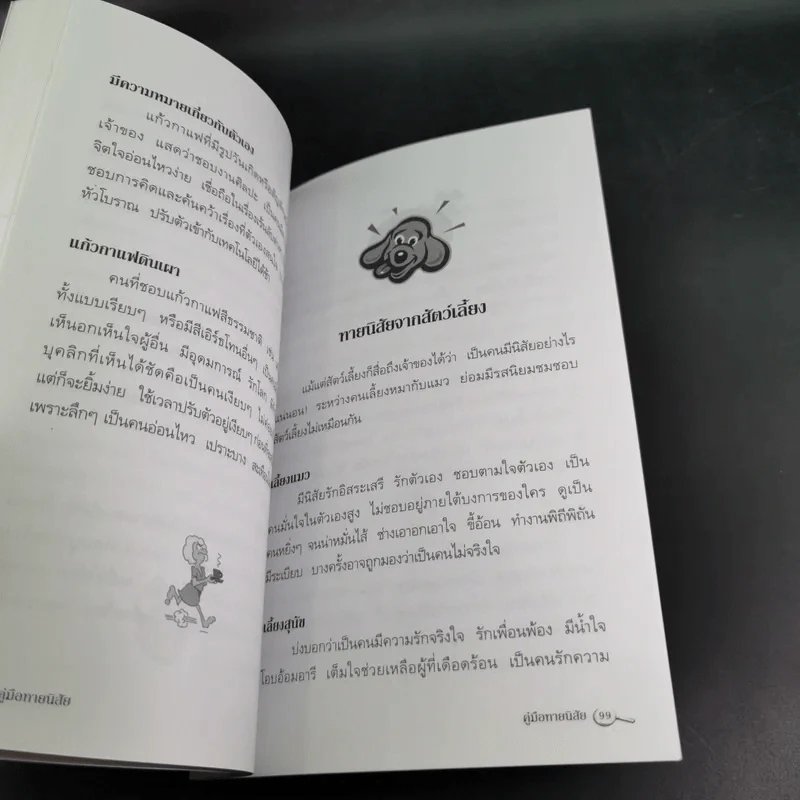 มีความหมายเกี่ยวกับตัวเอง
แก้วกาแฟที่มีรูปวันเกิดหรือ
เจ้าของ แสดว่าชอบงานศิลปะ
จิตใจอ่อนไหวง่าย เชื่อถือในเรื่อง
ชอบการคิดและค้นคว้าเรื่องที่ตัวเองสนใจ
หัวโบราณ ปรับตัวเข้ากับเทคโนโลยีได้ช้า
แก้วกาแฟดินเผา
คนที่ชอบแก้วกาแฟสีธรรมชาติ เช่น
ทั้งแบบเรียบๆ หรือมีสีเอิร์ธโทนอื่นๆ
เห็นอกเห็นใจผู้อื่น มีอุดมการณ์ รักโลก
บุคลิกที่เห็นได้ชัดคือเป็นคนเงียบๆ
แต่ก็จะยิ้มง่าย ใช้เวลาปรับตัวอยู่เงียบๆ
เพราะลึกๆ เป็นคนอ่อนไหว เปราะบาง
คู่มือทายนิสัย
ทายนิสัยจากสัตว์เลี้ยง
แม้แต่สัตว์เลี้ยงก็สื่อถึงเจ้าของได้ว่า เป็นคนมีนิสัยอย่างไร
แน่นอน! ระหว่างคนเลี้ยงหมากับแมว ย่อมมีรสนิยมชมชอบ
สัตว์เลี้ยงไม่เหมือนกัน
เลี้ยงแมว
มีนิสัยรักอิสระเสรี รักตัวเอง ชอบตามใจตัวเอง เป็น
คนมั่นใจในตัวเองสูง ไม่ชอบอยู่ภายใต้บงการของใคร ดูเป็น
คนหยิ่งๆ จนน่าหมั่นไส้ ช่างเอาอกเอาใจ ขี้อ้อน ทำงานพิถีพิถัน
มีระเบียบ บางครั้งอาจถูกมองว่าเป็นคนไม่จริงใจ
เลี้ยงสุนัข
บ่งบอกว่าเป็นคนมีความรักจริงใจ รักเพื่อนพ้อง มีน้ำใจ
โอบอ้อมอารี เต็มใจช่วยเหลือผู้ที่เดือดร้อน เป็นคนรักความ
คู่มือทายนิสัย 99